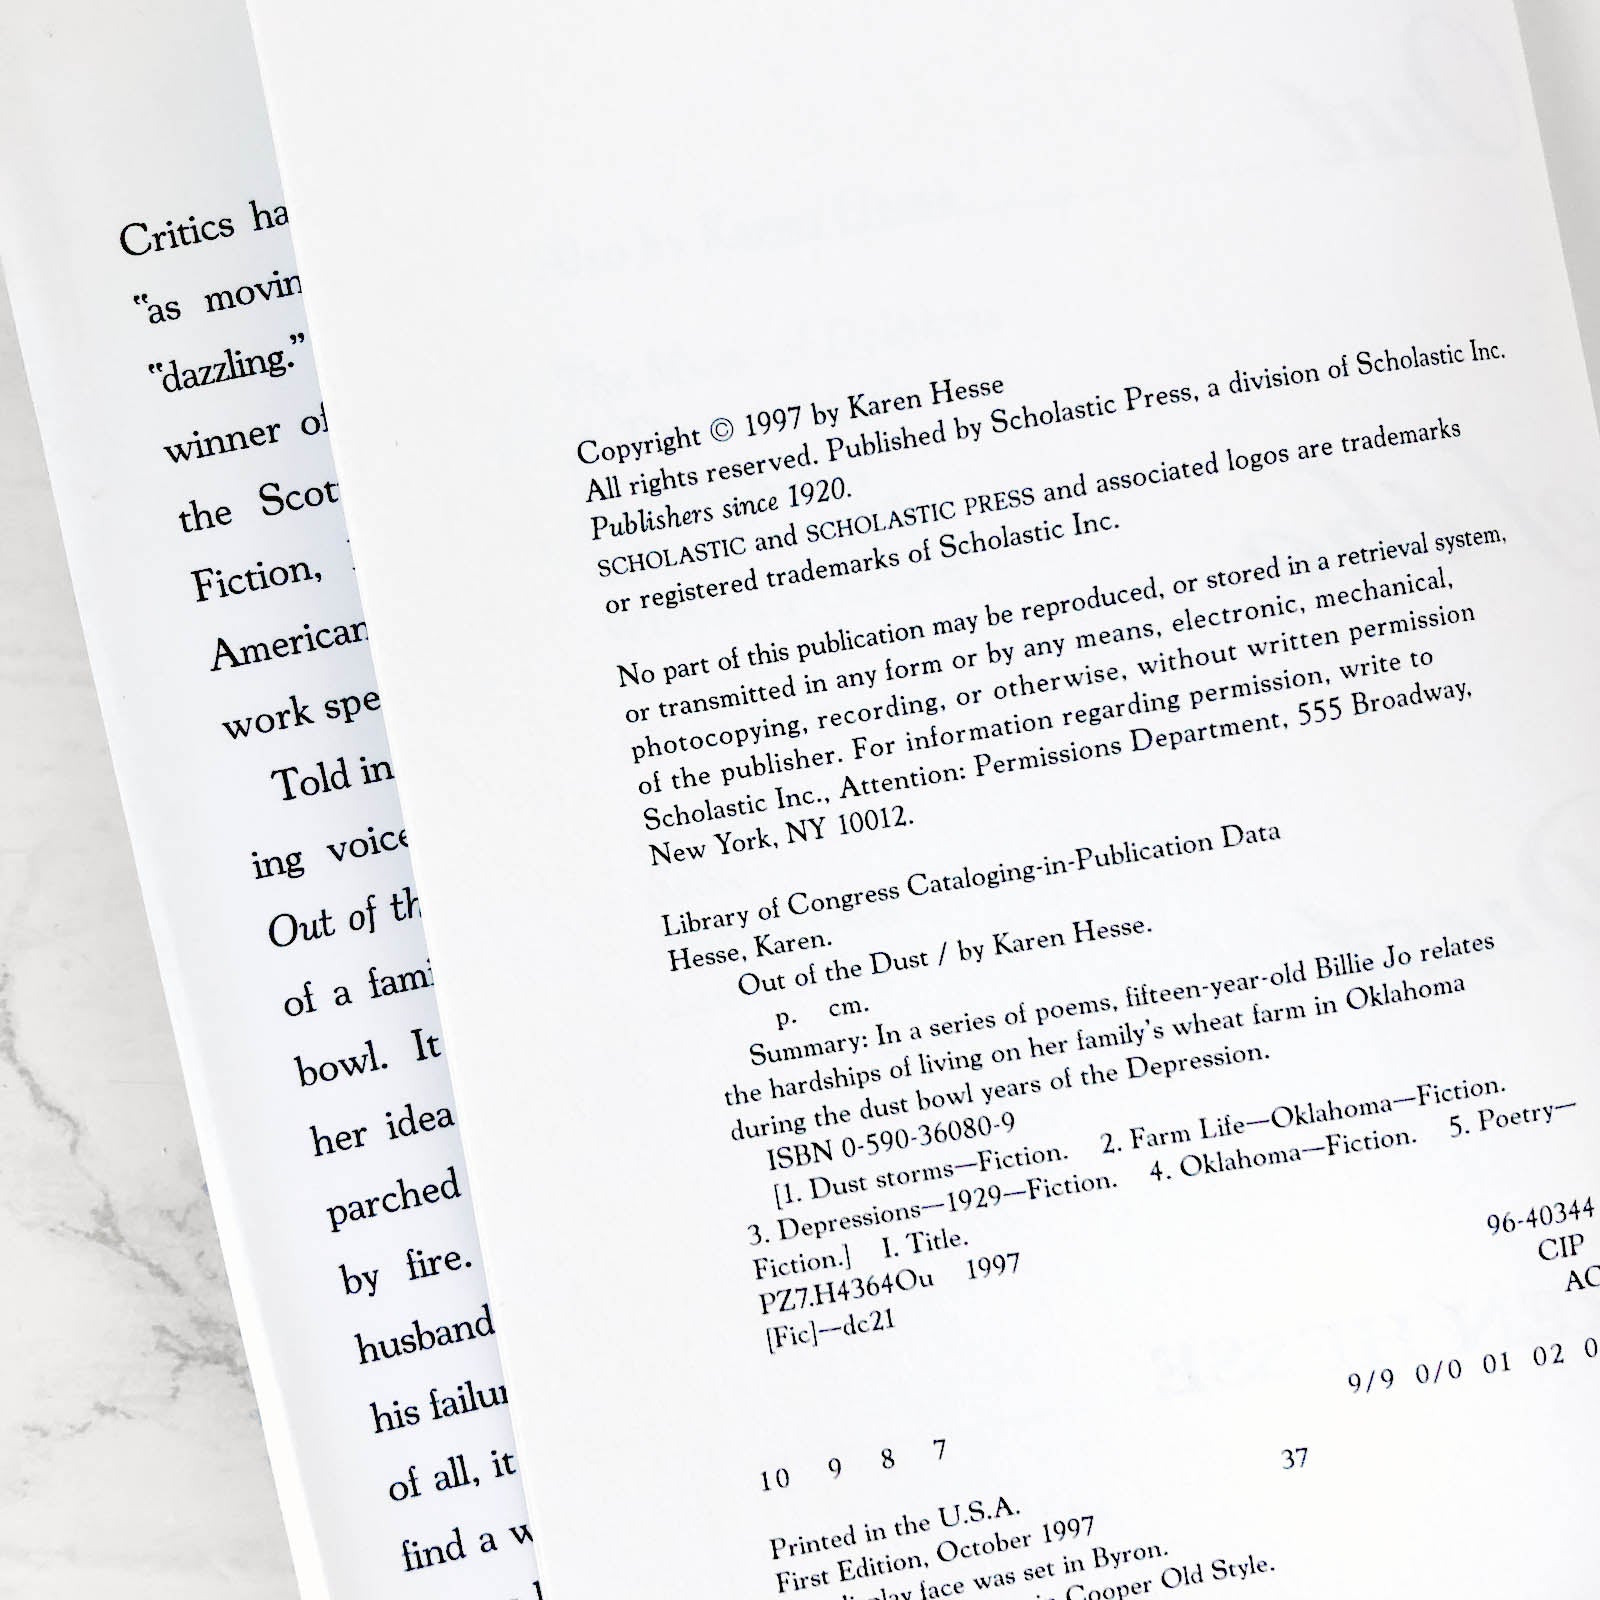 Critics ha
“as movin
“dazzling.”
winner of
the Scot
Fiction,
American
work spe
Told in
ing voice
Out of th
of a fami
bowl. It
her idea
parched
by fire.
husband
his failur
of all, it
find a w
Copyright © 1997 by Karen Hesse
All rights reserved. Published by Scholastic Press, a division of Scholastic Inc.
Publishers since 1920.
SCHOLASTIC and SCHOLASTIC PRESS and associated logos are trademarks
or registered trademarks of Scholastic Inc.
No part of this publication may be reproduced, or stored in a retrieval system,
or transmitted in any form or by any means, electronic, mechanical,
photocopying, recording, or otherwise, without written permission
of the publisher. For information regarding permission, write to
Scholastic Inc., Attention: Permissions Department, 555 Broadway,
New York, NY 10012.
Library of Congress Cataloging-in-Publication Data
Hesse, Karen.
Out of the Dust / by Karen Hesse.
p. cm.
Summary: In a series of poems, fifteen-year-old Billie Jo relates
the hardships of living on her family’s wheat farm in Oklahoma
during the dust bowl years of the Depression.
ISBN 0-590-36080-9
[1. Dust storms—Fiction. 2. Farm Life—Oklahoma—Fiction.
3. Depressions—1929—Fiction. 4. Oklahoma—Fiction. 5. Poetry—
Fiction.] I. Title.
PZ7.H4364Ou 1997
[Fic]—dc21
96-40344
CIP
AC
10 9 8 7
9/9 0/0 01 02 0
37
Printed in the U.S.A.
First Edition, October 1997
display face was set in Byron.
Cooper Old Style.